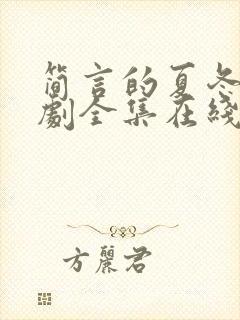 简言的夏冬
劇全集在綫
方麗君